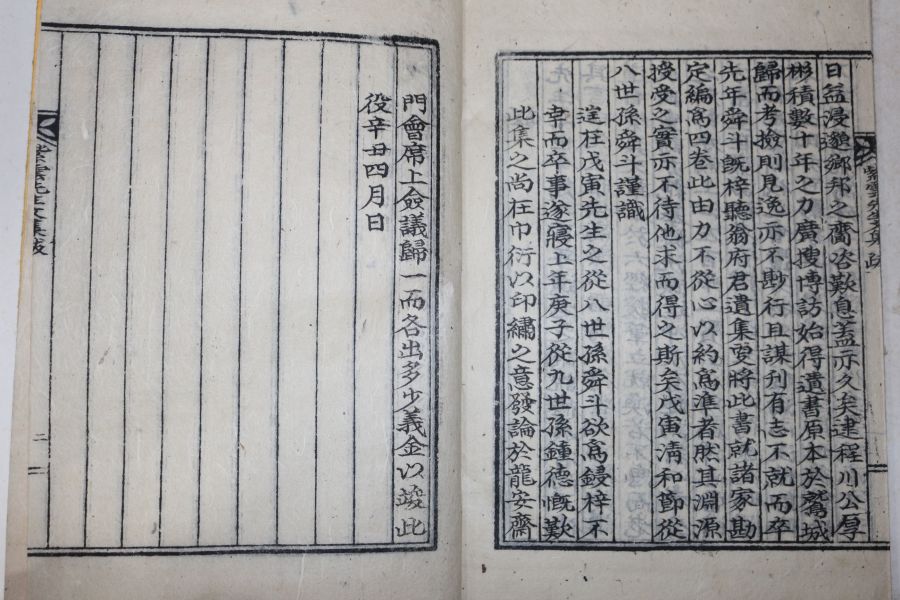 日益湮邈鄉邦之齎咨歎息蓋亦久矣逮程川公厚
彬積數十年之力廣搜博訪始得遺書原本於鷲城
歸而考撿則見逸亦不尠行且謀刊有志不就而卒
先年舜斗旣梓聽翁府君遺集更將此書就諸家勘
定編爲四卷此由力不從心以約爲準者然其淵源
授受之實亦不待他求而得之斯矣戊寅淸和節從
八世孫舜斗謹識
逞在戊寅先生之從八世孫舜斗欲爲鋟梓不
幸而卒事遂寢上年庚子從九世孫鍾德慨歎
此集之尚在巾衍以印繡之意發論於龍安齋
門會席上僉議歸一而各出多少義金以竣此
役辛丑四月日
二